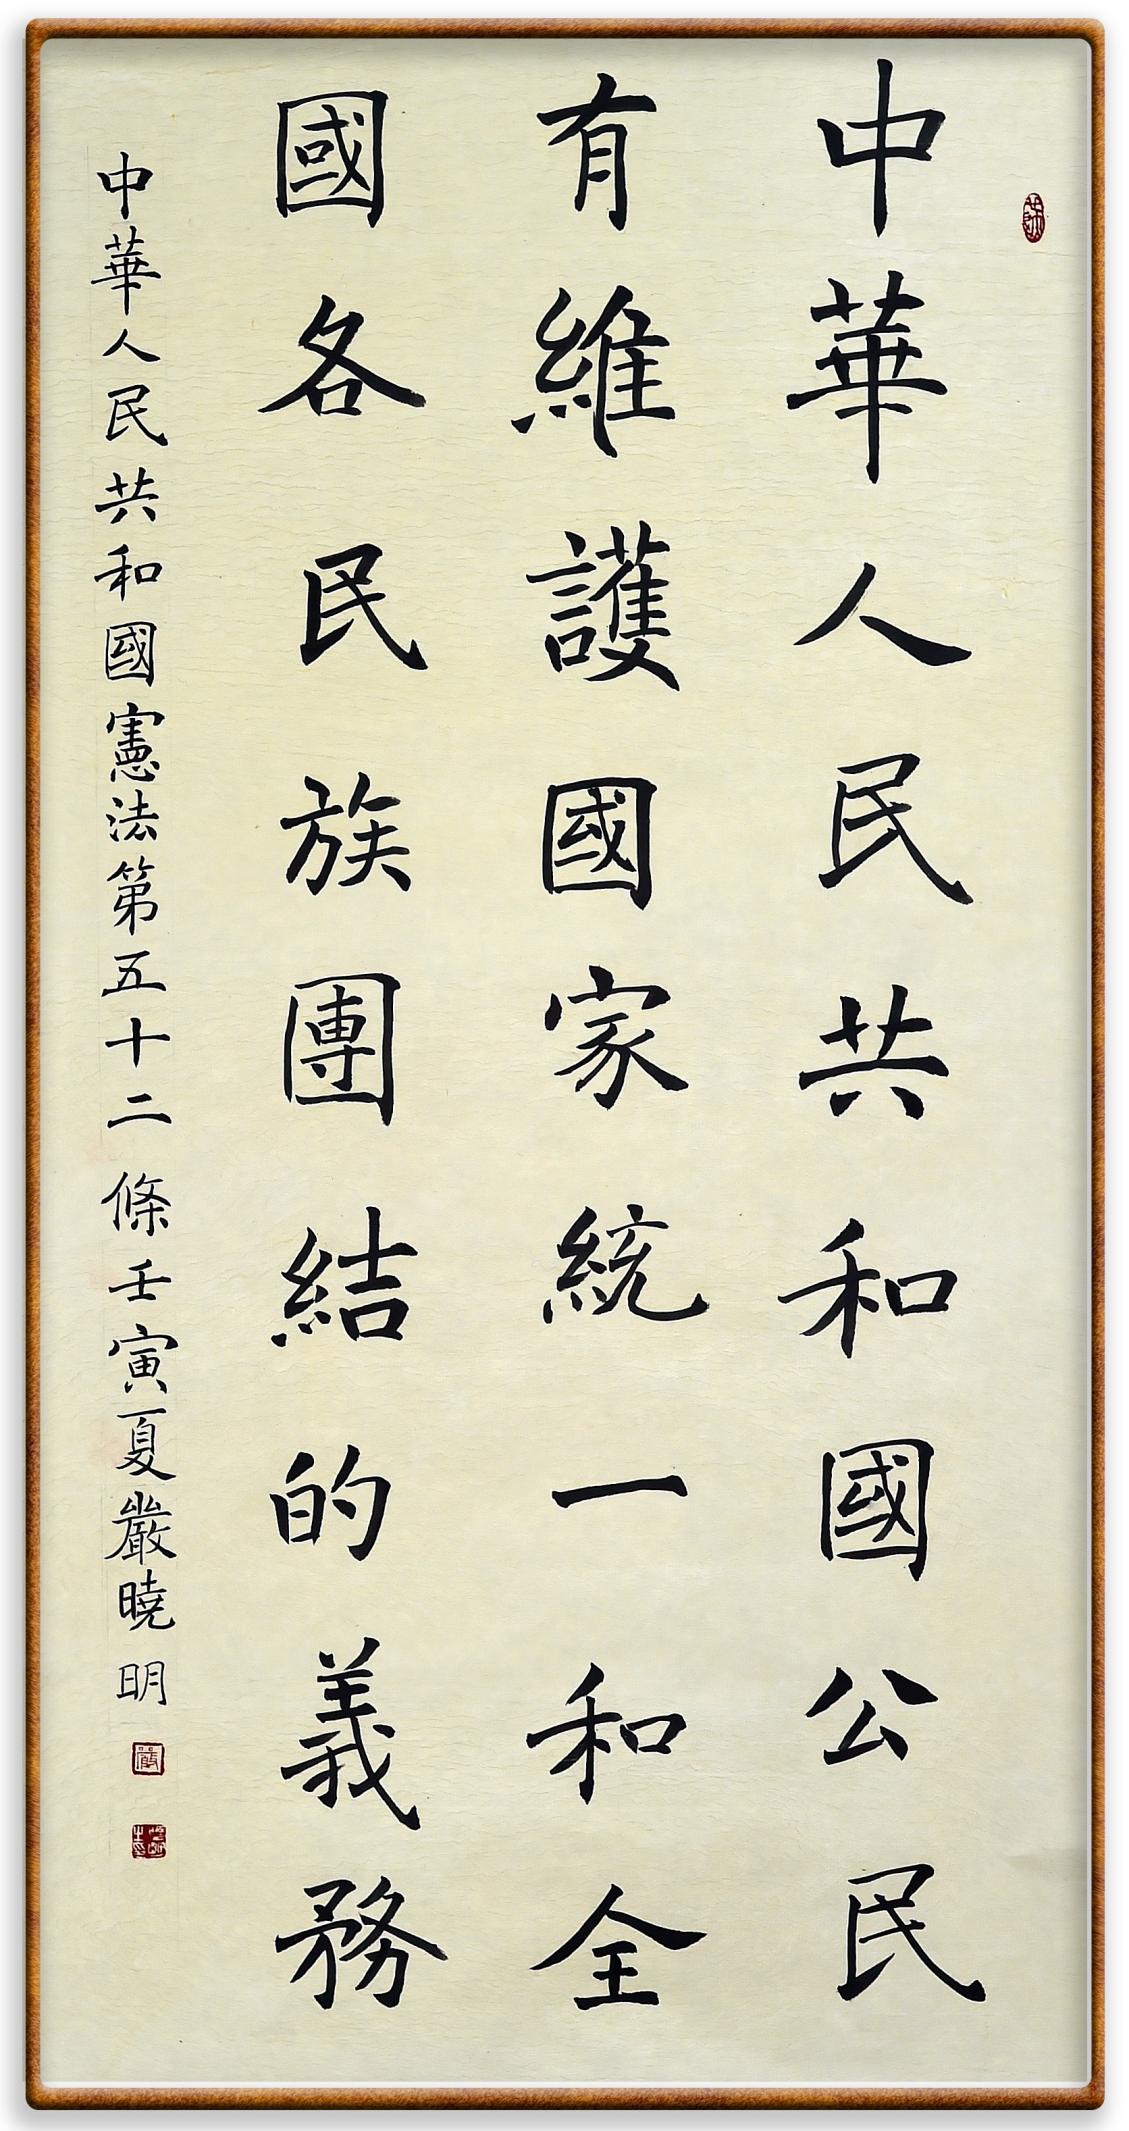 中華人民共和國公民
有維護國家統一和全
國各民族團結的義務
中華人民共和國憲法第五十二條壬寅夏嚴曉明
嚴